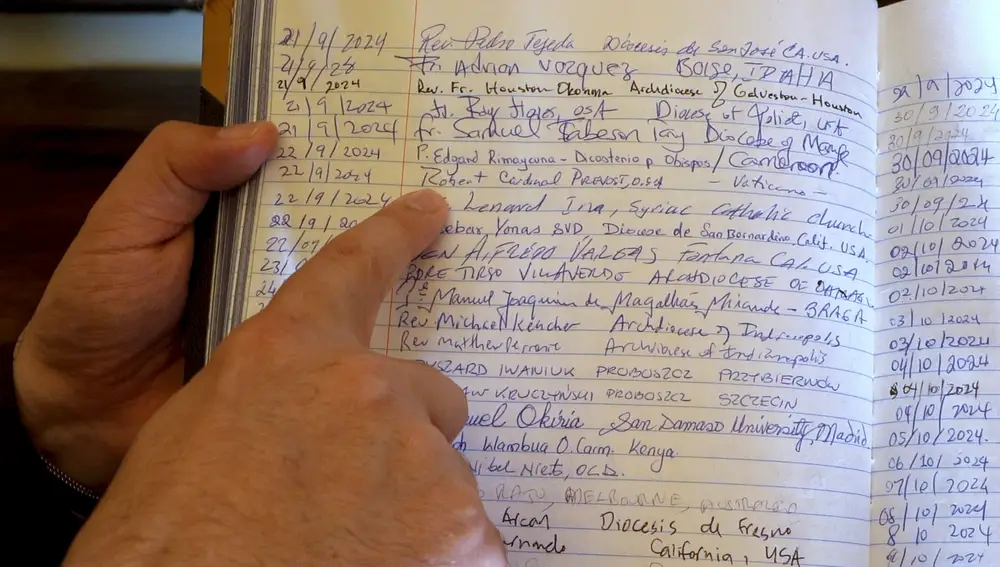 21/9/2024 Rev. Pedro Tejeda Diócesis de San José CA. USA.
21/9/24 Fr. Adrian Vazquez Boise, IDAHO
21/9/2024 Rev. Fr. Houston Okonma Archdiocese of Galveston-Houston
21/9/2024 Fr. Roy OSA Diocese of Joliet, USA
21/9/2024 Fr. Samuel Diocese of
22/9/2024 P. Edgard Rimaycuna - Dicasterio p. Obispos / Cameroon
22/9/2024 Robert Cardinal PREVOST, O.S.A - Vaticano -
22/9/2024 Lenard Ina, Syriac Catholic church
22/9/20 Yonas SVD Diocese de San Bernardino, Calif. USA
22/09 ALFREDO VARGAS Fontana CAL. USA
23/ PADRE TIRSO VILLAVERDE ARCHDIOCESE OF
24 Pe Manuel Joaquim de Magalhães Miranda - BRAGA
Rev Michael Keucher Archdiocese of Indianapolis
Rev Matthew Perronie Archdiocese of Indianapolis
RYSZARD IWANIUK PROBOSZCZ PRZYBIERNÓW
KRUCZYŃSKI PROBOSZCZ SZCZECIN
uel Okiria San Damaso University, Madrid
Wambua O.Carm. Kenya
Nibel Niets, OCD.
MELBOURNE, AUSTRALIA
Arcán Diocesis de Fresno
ernando California, USA
29/9/2024
30/9/2024
30/9/2024
30/09/2024
30/09/2024
30/09/24
01/10/2024
02/10/2024
02/10/2024
02/10/2024
03/10/2024
03/10/2024
04/10/2024
04/10/2024
04/10/2024
05/10/2024.
06/10/2024
07/10/2024
08/10/2024
8/10 2024
9/10/2024